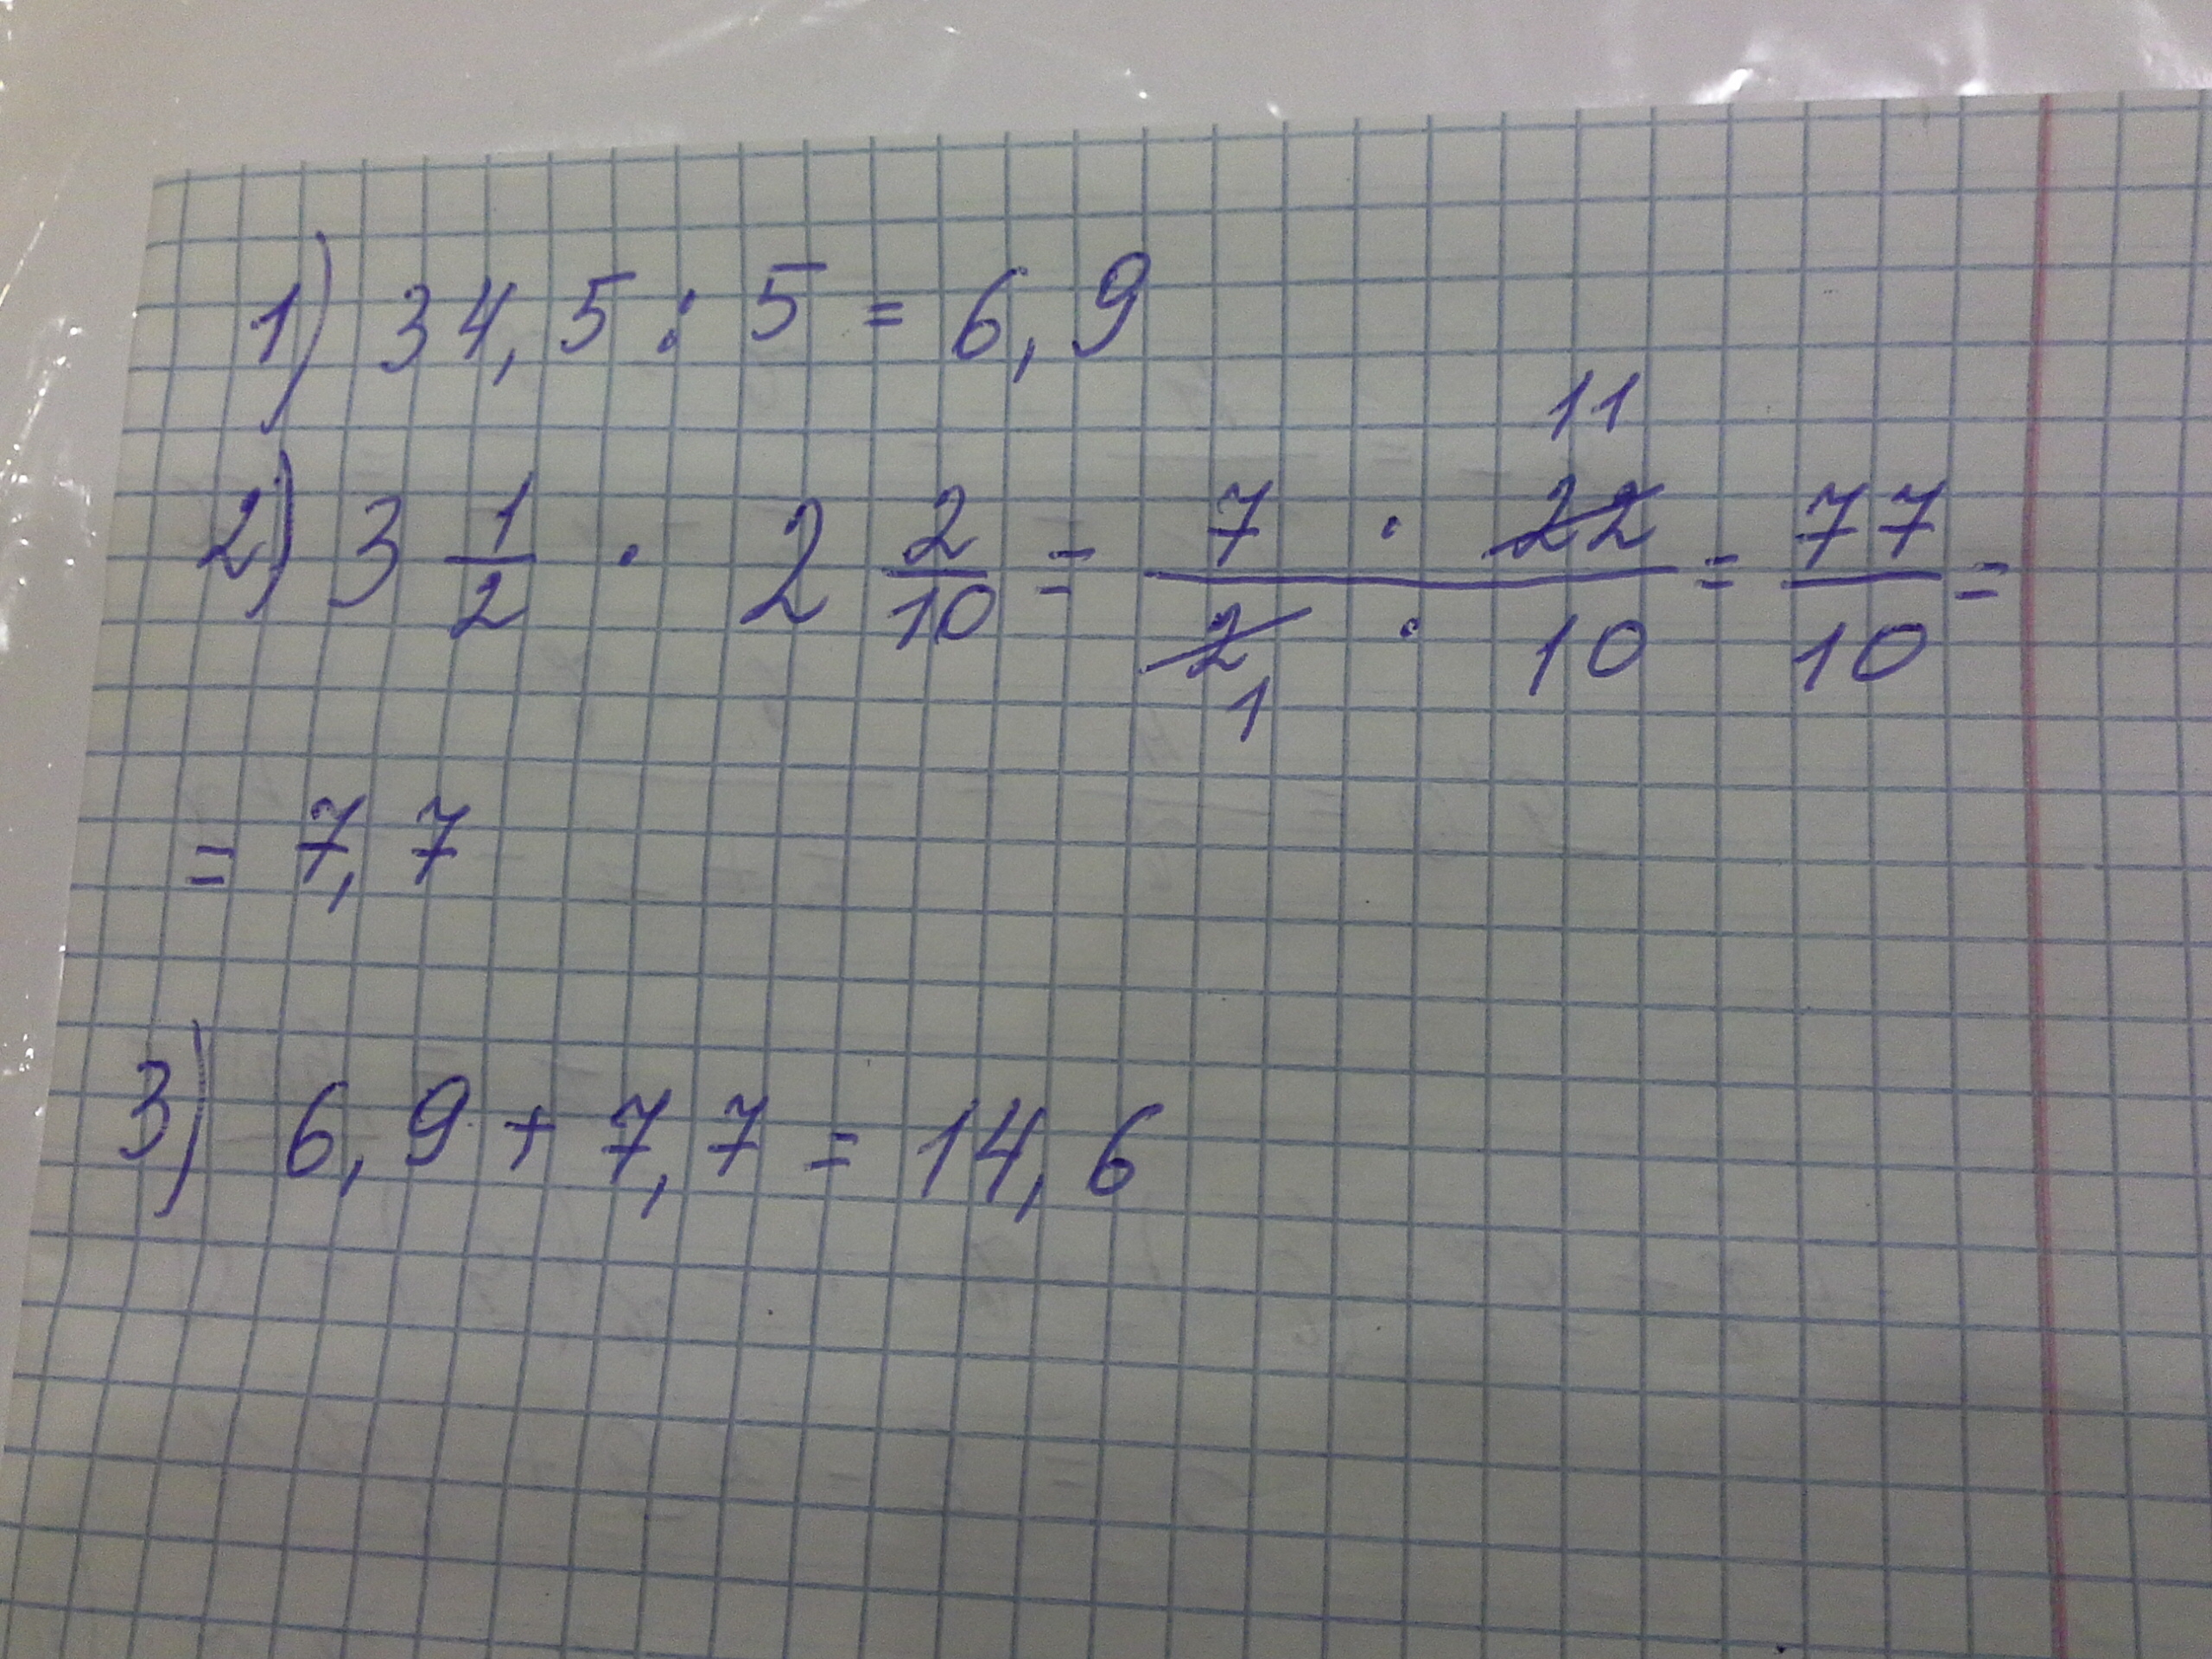 1) 34,5 : 5 = 6,9
2) 3 1/2 · 2 2/10 = 7 · 22 11 / 2 1 · 10 = 77/10 =
= 7,7
3) 6,9 + 7,7 = 14,6